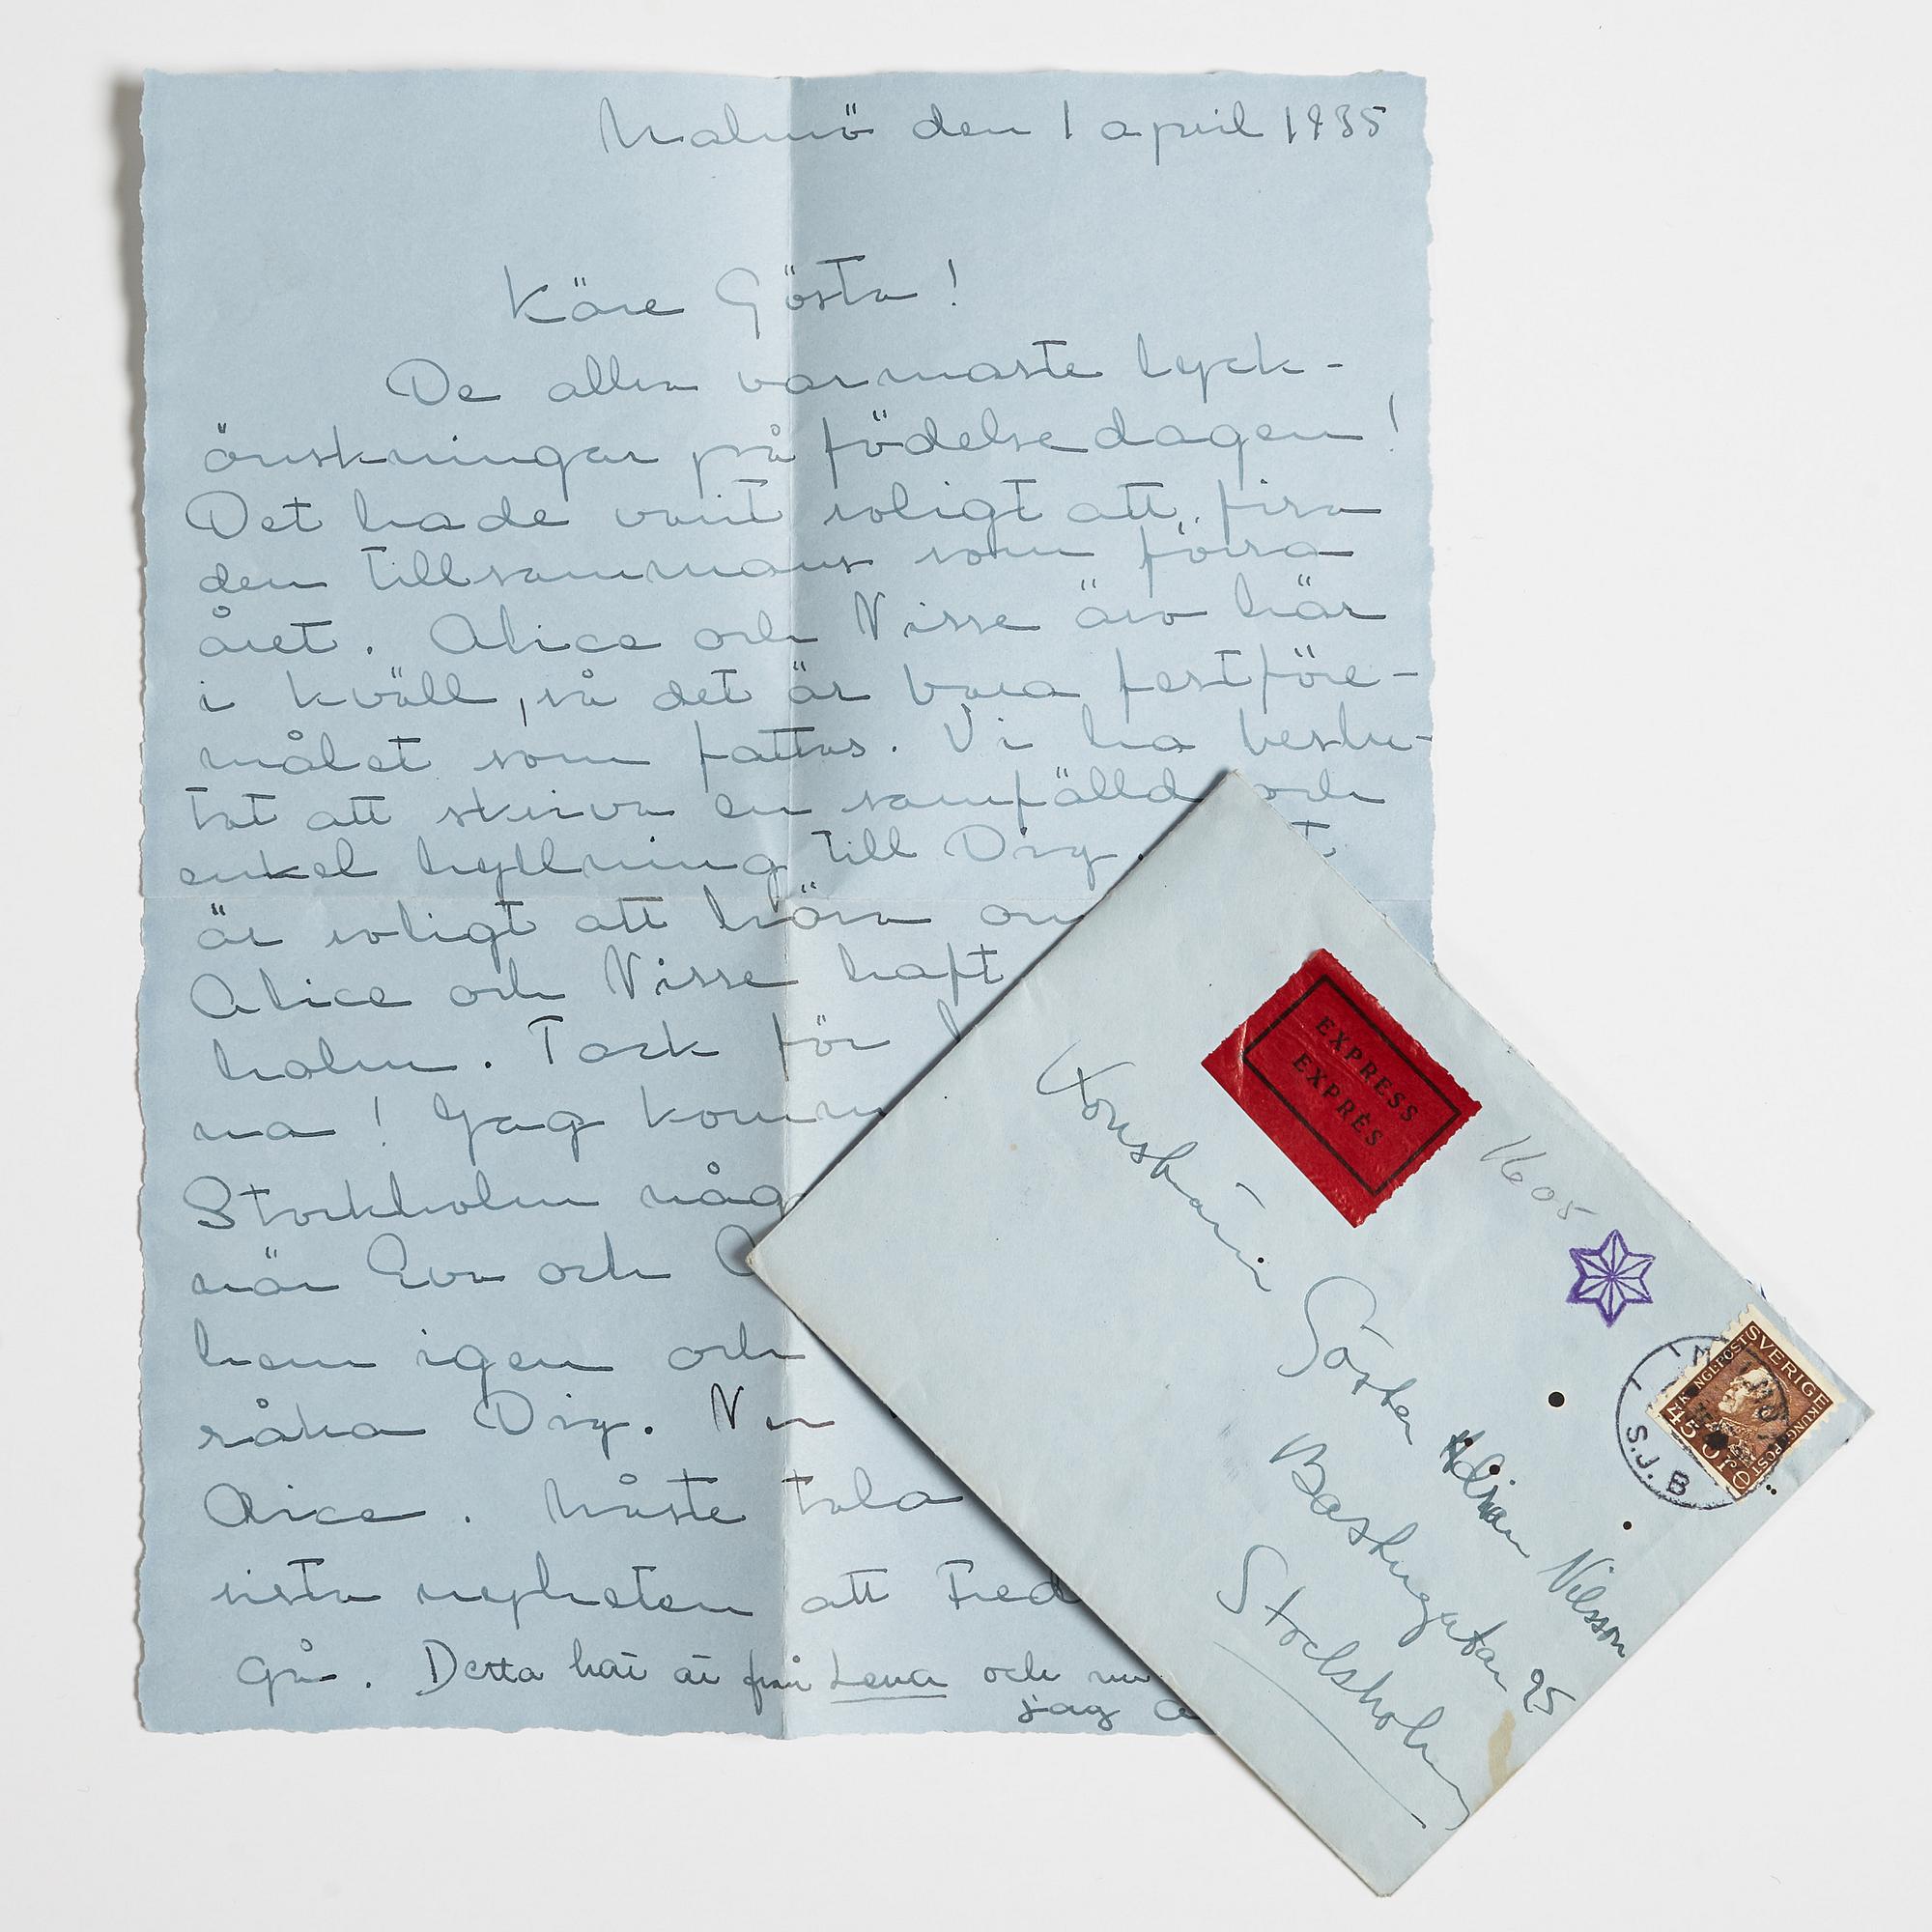 Malmö den 1 april 1935
Käre Gösta!
De allra varmaste lyck-
önskningar på födelsedagen!
Det hade varit roligt att fira
den tillsammans som förra
året. Alice och Nisse äro här
i kväll, så det är bara festföre-
målet som fattas. Vi ha beslu-
tat att skriva en samfälld och
enkel hyllning till Dig.
är roligt att höra
Alice och Nisse haft
holm. Tack för
na! Jag komm
Stockholm någ
när Eva och
hem igen och
råka Dig. Nu
Alice. Måste tala
sista nyheten att Fred
Gå. Detta här är från Lena och nu
jag
EXPRESS
EXPRÈS
1605
Konstnären
Gösta Adrian Nilsson
Bastugatan 25
Stockholm
SVERIGE
KUNGL. POST
KUNGL. POST
45 öre
S.J. B